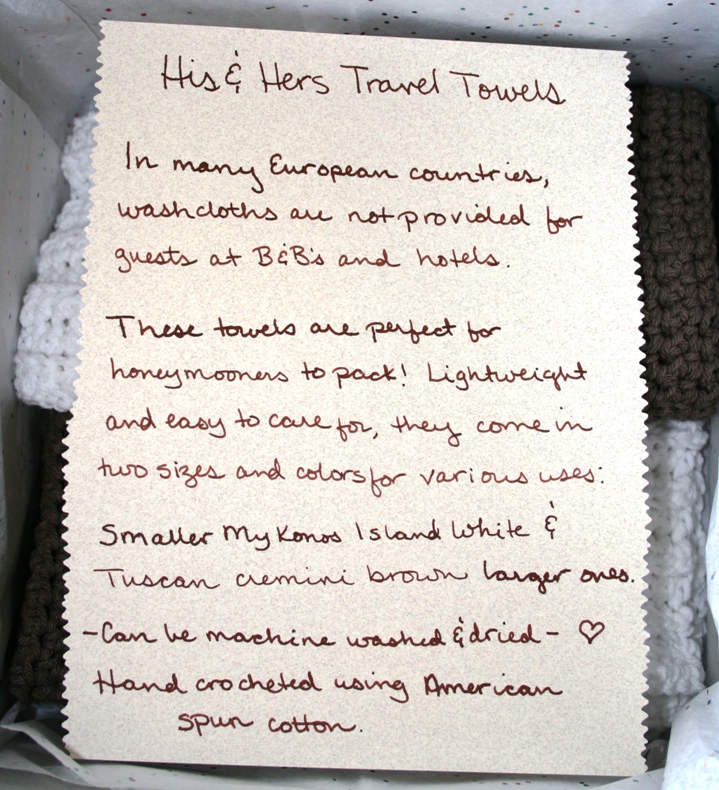 His & Hers Travel Towels
In many European countries,
washcloths are not provided for
guests at B&B's and hotels.
These towels are perfect for
honeymooners to pack! Lightweight
and easy to care for, they come in
two sizes and colors for various uses:
Smaller Mykonos Island White &
Tuscan cremini brown larger ones.
-Can be machine washed & dried- ♡
Hand crocheted using American
spun cotton.